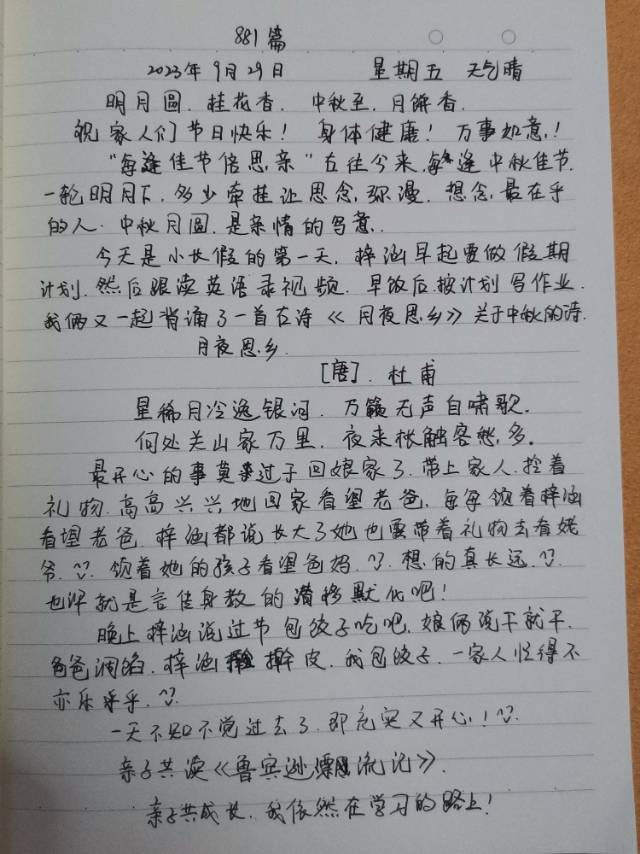 881篇
2023年9月29日 星期五 天气晴
明月圆. 桂花香. 中秋至. 月饼香.
祝家人们节日快乐! 身体健康! 万事如意!
"每逢佳节倍思亲"古往今来,每逢中秋佳节.
一轮明月下,多少牵挂让思念,弥漫. 想念,最在乎
的人. 中秋月圆.是亲情的写意.
今天是小长假的第一天. 梓涵早起要做假期
计划.然后跟读英语录视频. 早饭后.按计划写作业.
我俩又一起背诵了一首古诗《月夜思乡》关于中秋的诗.
月夜思乡.
[唐]. 杜甫
星稀月冷逸银河. 万籁无声自啸歌.
何处关山家万里. 夜来枨触客愁,多.
最开心的事莫过于回娘家了.带上家人.拎着
礼物.高高兴兴地回家看望老爸.每每领着梓涵
看望老爸.梓涵都说长大了她也要带着礼物去看姥
爷. 领着她的孩子看望爸妈. 想的真长远.
也许就是言传身教的潜移默化吧!
晚上梓涵说过节包饺子吃吧.娘俩说干就干.
爸爸调馅.梓涵擀皮.我包饺子.一家人忙得不
亦乐乎.
一天不知不觉过去了.即充实又开心!
亲子共读《鲁宾逊漂流记》.
亲子共成长.我依然在学习的路上!